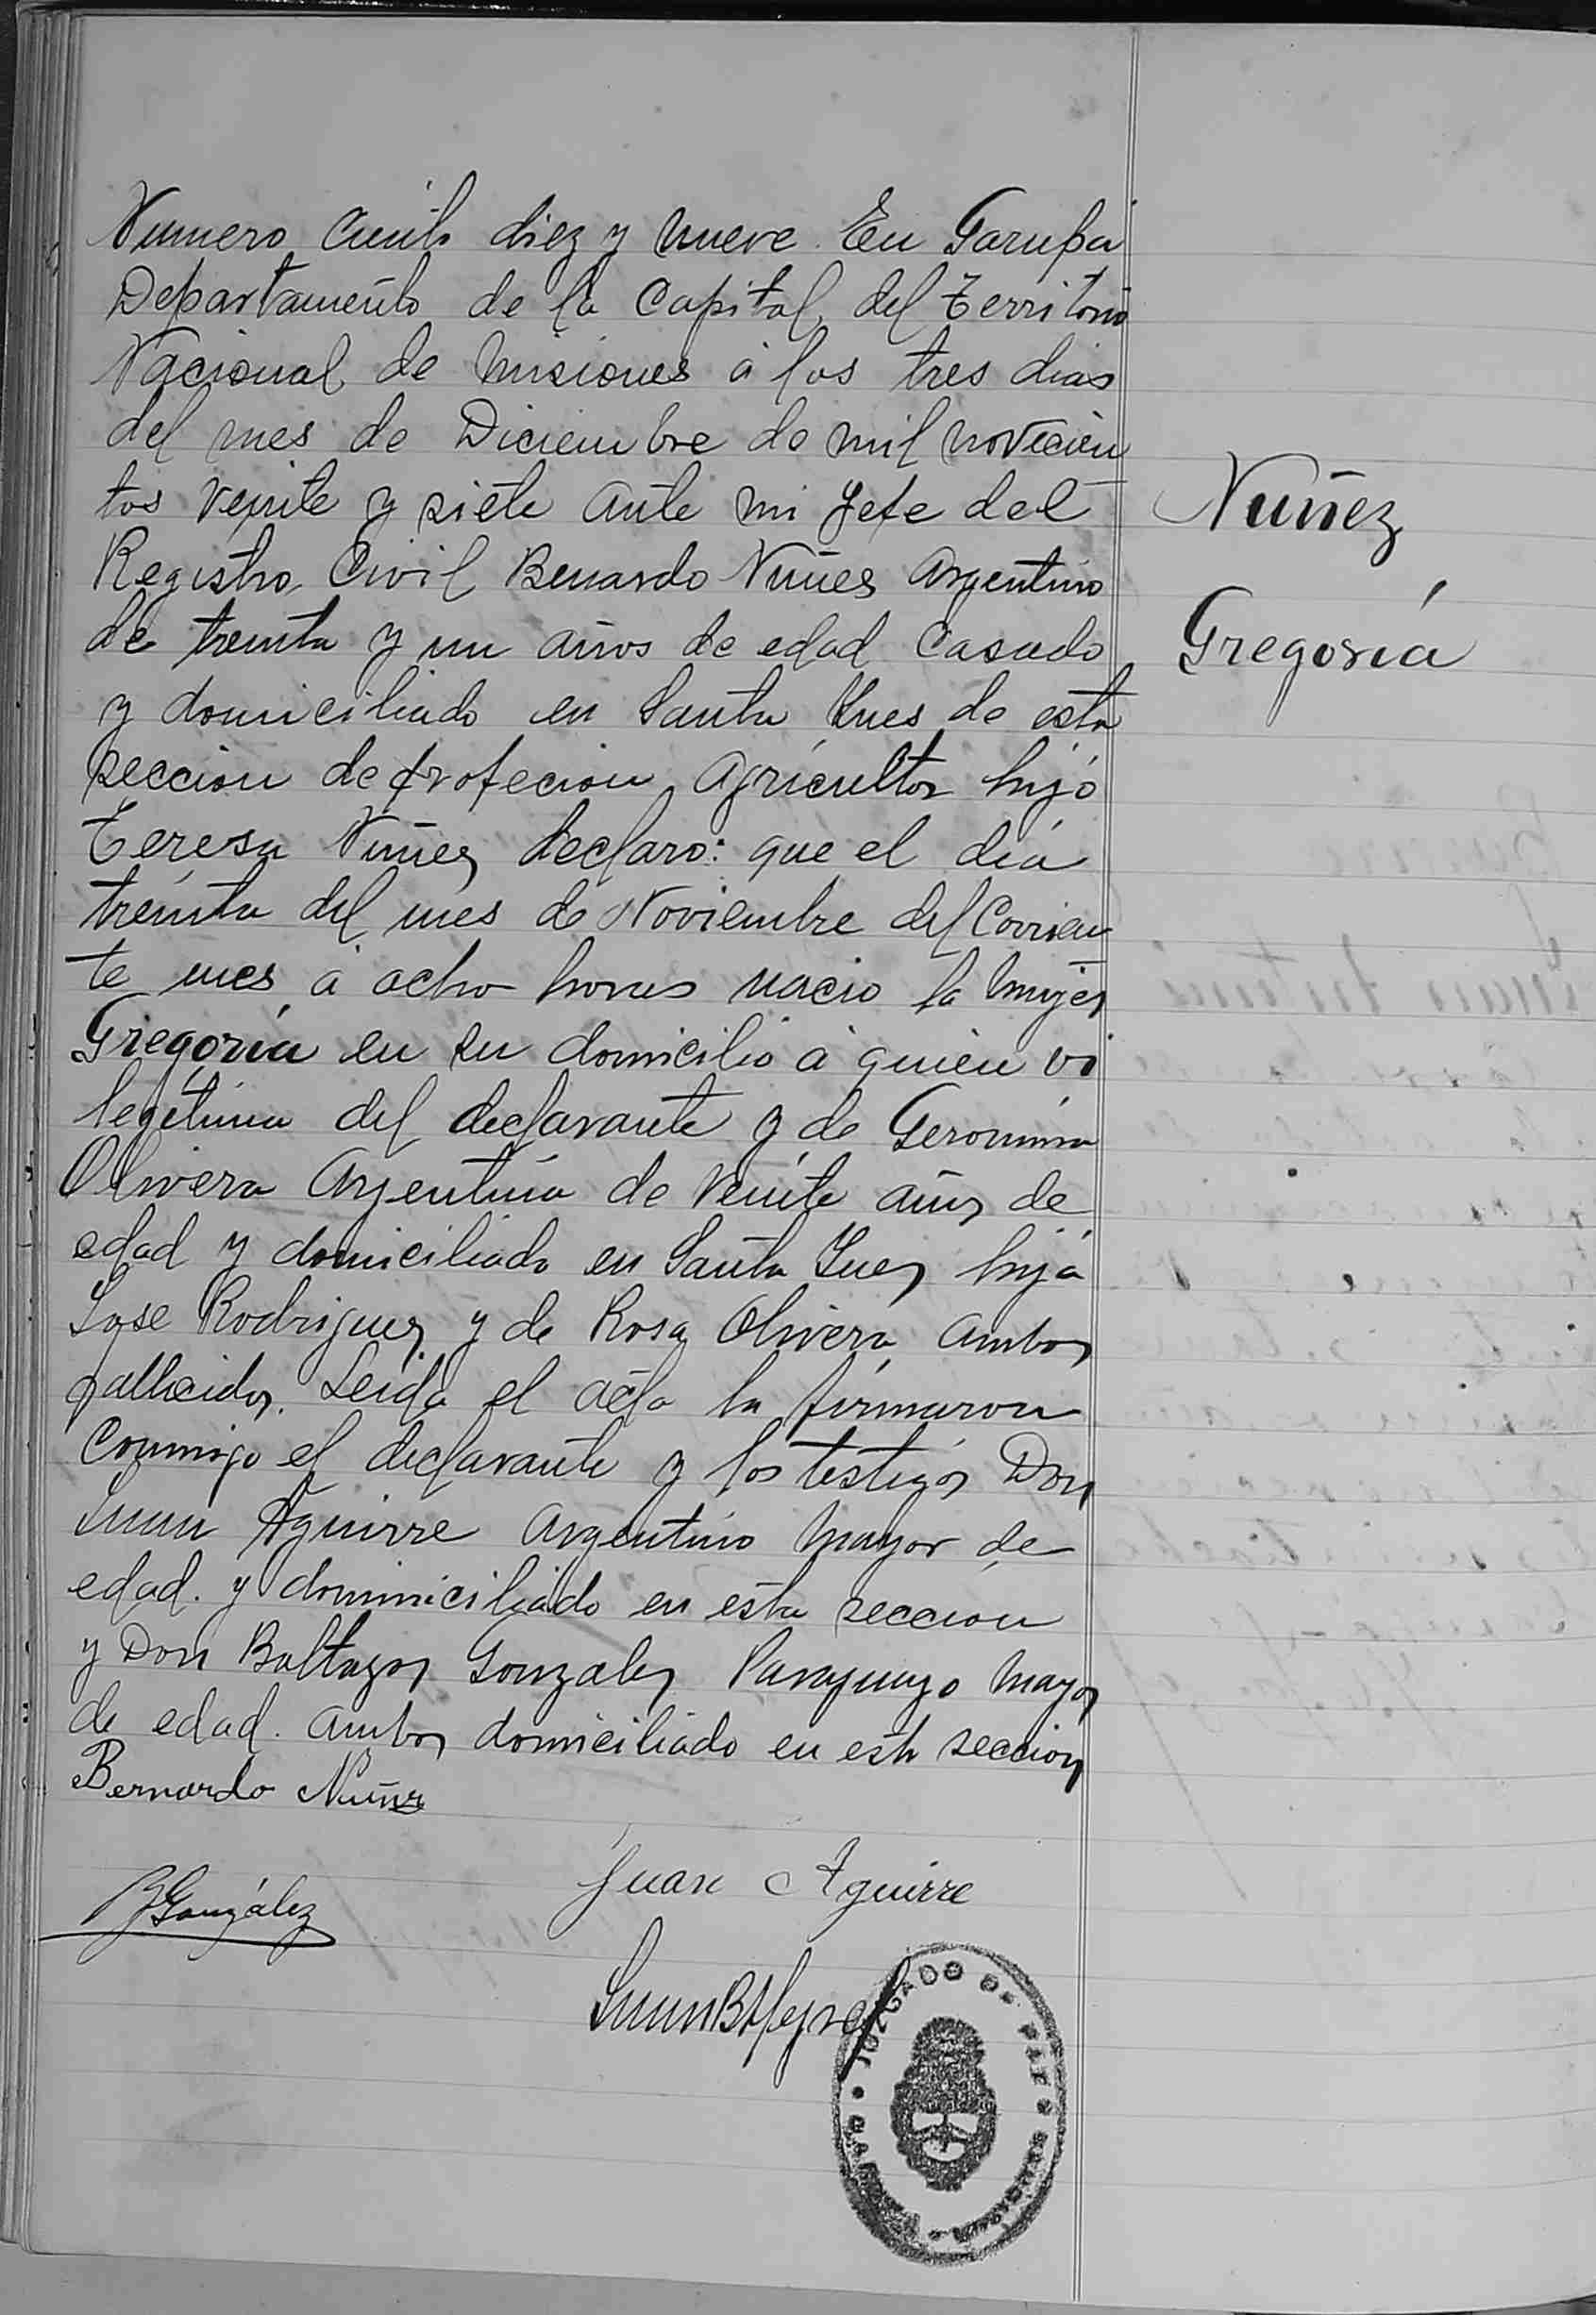 Numero Ciento diez y nueve. En Garupá
Departamento de la Capital del Territorio
Nacional de Misiones á los tres dias
del mes de Diciembre de mil novecien
tos veinte y siete ante mi Jefe del
Registro Civil Benardo Nuñes Argentino
de treinta y un años de edad Casado
y domiciliado en Santa Ynes de esta
seccion de profecion Agricultor hijo
Teresa Nuñez declaro: que el día
treinta del mes de Noviembre del Corrien
te mes á ocho horas nacio la mujer
Gregoria en su domicilio á quien vi
legitima del declarante y de Geronima
Olivera Argentina de veinte años de
edad y domiciliado en Santa Ynes hija
Jose Rodriguez y de Rosa Olivera ambos
fallecidos. Leida el acta la firmaron
Conmigo el declarante y los testigos Don
Juan Aguirre Argentino mayor de
edad. y dominiciliado en esta seccion
y Don Baltazar Gonzales Paraguayo mayor
de edad. ambos domiciliado en esta seccion
Bernardo Nuñez
Juan Aguirre
BGonzález
Juan B
JUZGADO DE PAZ
Nuñez
Gregoria